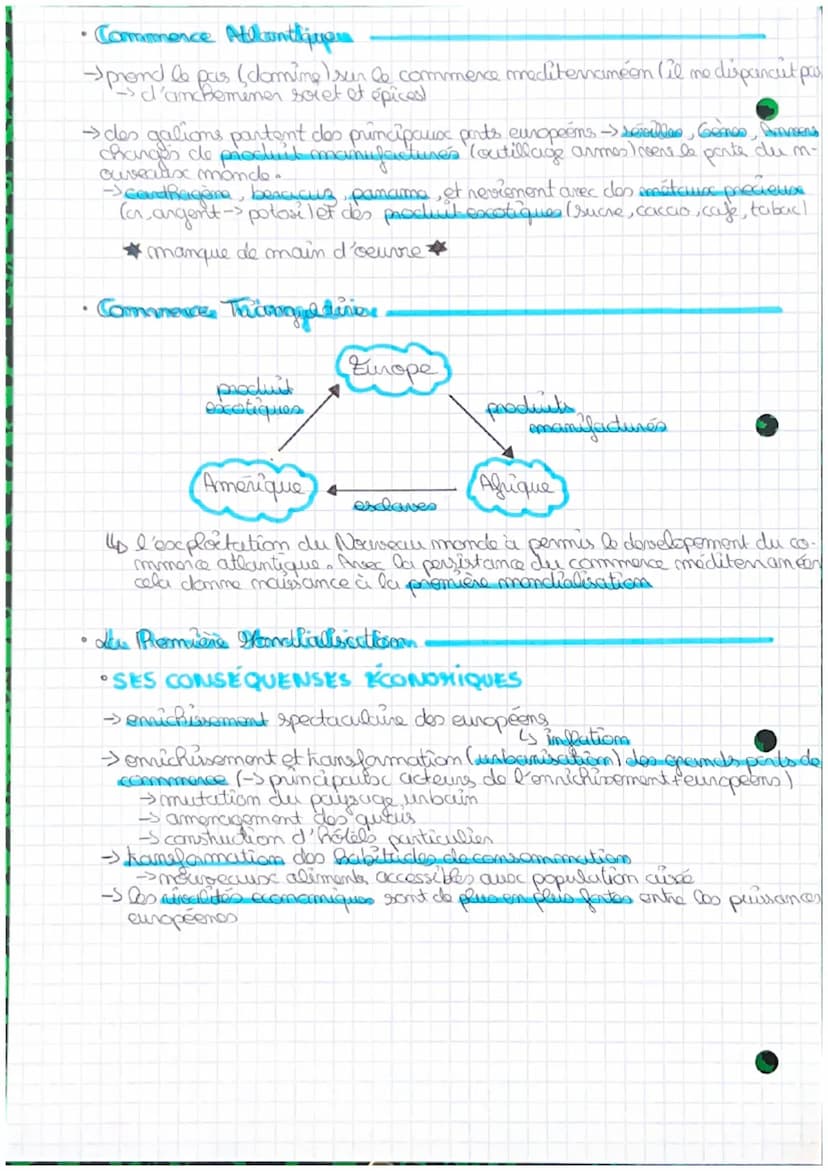 • Commerce Atlantique
→ prend le pas (domine) sur le commerce mediterranéen (il ne disparait pas
→ d'ancheminer soiet et épices)
→ des galions partent des principaux ports européens → sévilles, Gênes, Anvers
changés de produit manufacturés (outillage armes) vers le ports du n-
ouveaux monde.
→ carthagène, beracuz, panama, et reviennent avec des métaux precieux
(or, argent → potosi) et des produit exotiques (sucre, cacao, cafe, tabac)
★ manque de main d'oeuvre ★
• Commerce Triangulaire
Europe
produit
exotiques
produits
manifacturés
Amérique
Afrique
esclaves
↳ l'exploitation du Nouveau monde à permis le developement du co-
mmerce atlantique. Avec la persistance du commerce méditerranéen
cela donne naissance à la première mondialisation
• La Première Mondialisation
• SES CONSÉQUENSES ÉCONOMIQUES
→ enrichissement spectaculaire des européens
↳ inflation
→ enrichissement et transformation (urbanisation) des grands ports de
commerce (→ principaux acteurs de l'enrichissement européens)
→ mutation du paysage urbain
→ amenagement des
→ construction d'hôtels particulier
→ transformation des habitudes de consommation
→ nouveaux aliments accessibles aux population
→ Les rivalités economiques sont de plus en plus fortes entre les puissances
européenes